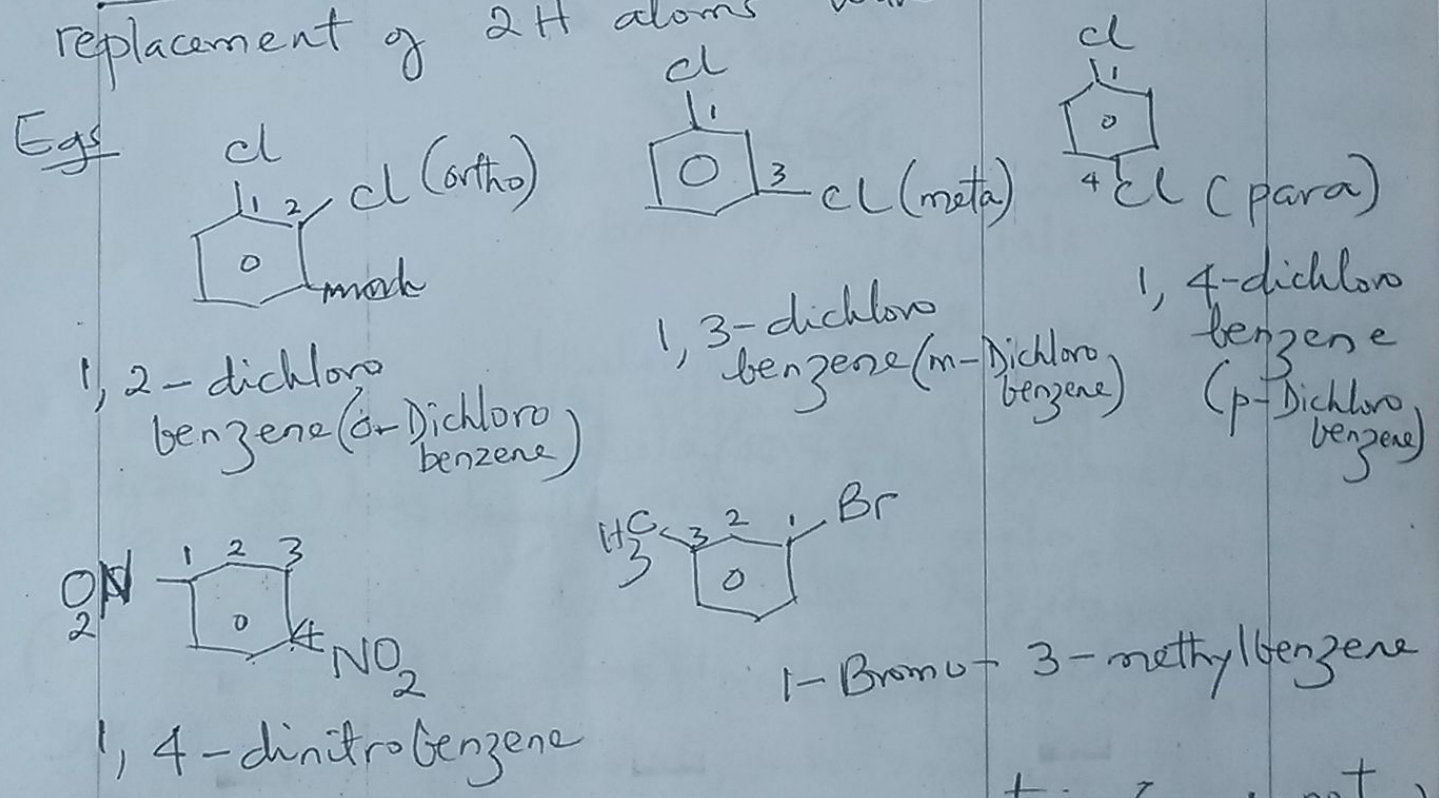 replacement of 2H atoms
Egs
Cl
1 2 Cl (ortho)
1, 2 - dichloro
benzene (o- Dichloro
benzene)
Cl
1
3 Cl (meta)
1, 3 - dichloro
benzene (m - Dichloro
benzene)
Cl
1
4 Cl (para)
1, 4 - dichloro
benzene
(p - Dichloro
benzene)
O2N 1 2 3
4 NO2
1, 4 - dinitrobenzene
H3C 3 2 1 Br
1 - Bromo - 3 - methylbenzene